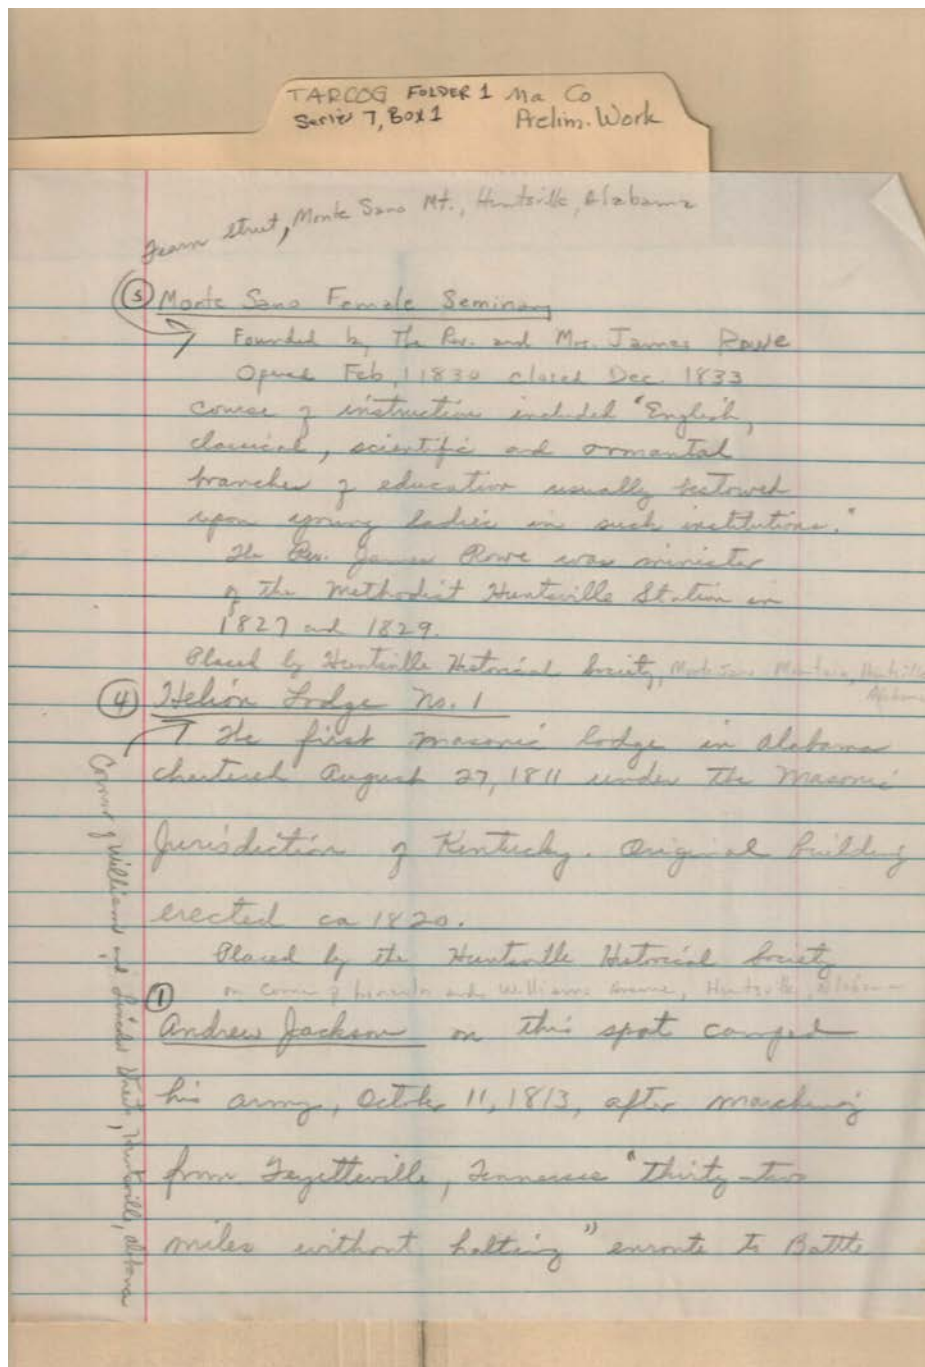 TARCOG FOLDER 1 Ma Co
Series 7, Box 1 Prelim. Work
Fearn Street, Monte Sano Mt., Huntsville, Alabama
(5) Monte Sano Female Seminary
Founded by The Rev. and Mrs. James Rowe
Opened Feb, 1 1830 closed Dec. 1833
course of instruction included "English,
classical, scientific and ornamtal
branches of education usually bestowed
upon young ladies in such institutions."
The Rev. James Rowe was minister
of the Methodist Huntsville Station in
1827 and 1829.
Placed by Huntsville Historical Society, Monte Sano Mountain, Huntsville
Alabama
(4) Helion Lodge No. 1
The first Masonic lodge in Alabama
chartered August 27, 1811 under the Masonic
Jurisdiction of Kentucky. Original building
erected ca 1820.
Placed by the Huntsville Historical Society
on Corner of Lincoln and Williams Avenue, Huntsville, Alabama
(1)
Andrew Jackson on this spot camped
his army, October 11, 1813, after marching
from Fayetteville, Tennessee "thirty-two
miles without halting" enroute to Battle
Corner of Williams and Lincoln Streets, Huntsville, Alabama